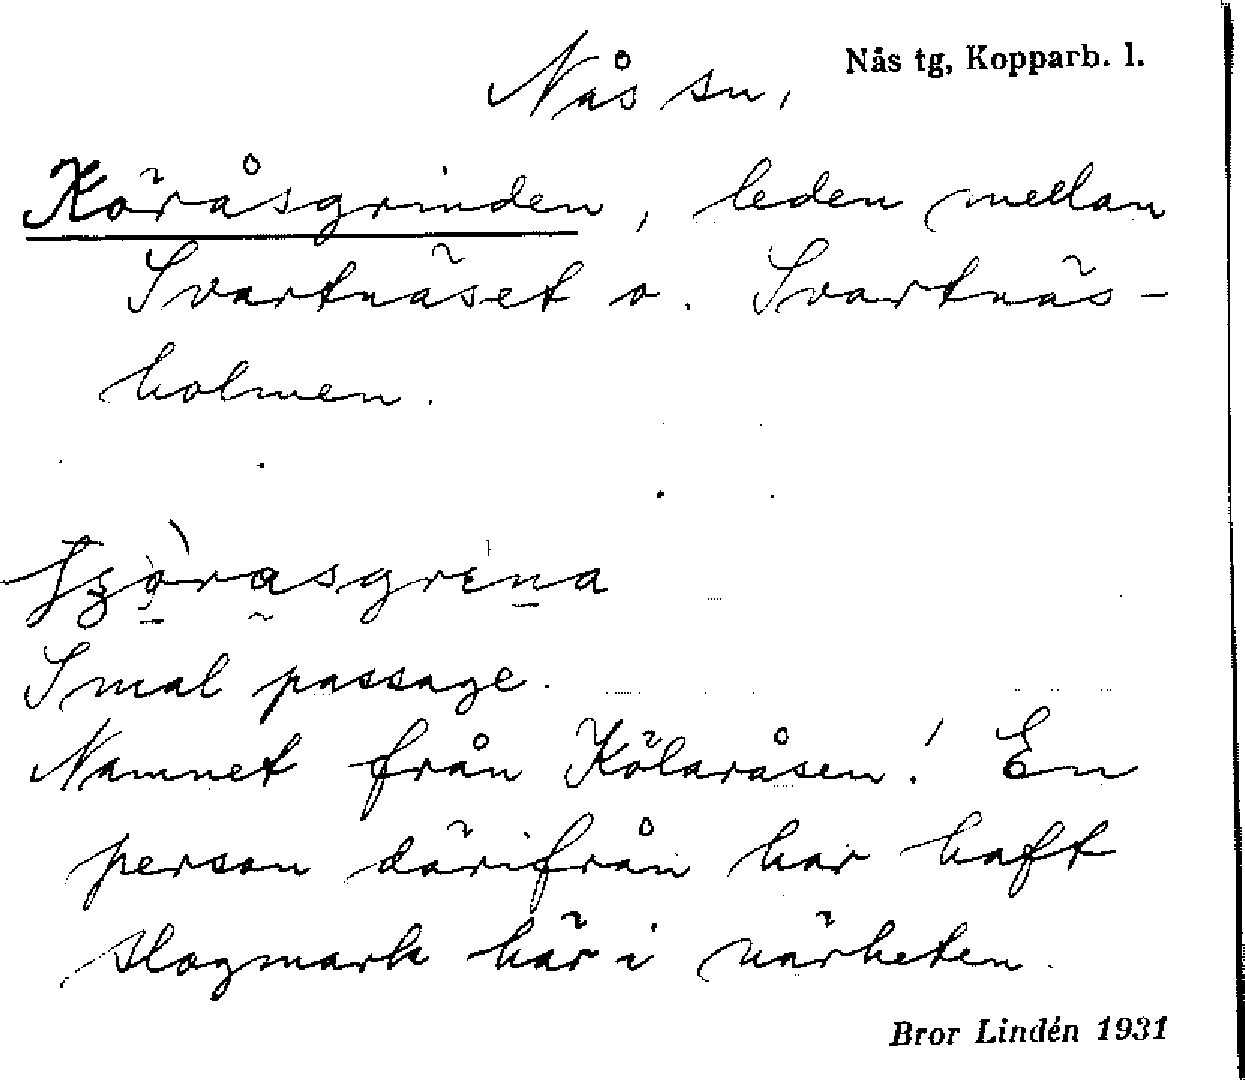 Nås tg, Kopparb. l.
Nås sn,
Köråsgrinden, leden mellan
Svartnäset o. Svartnäs-
holmen.
Smal passage.
Namnet från Kölaråsen! En
person därifrån har haft
slogmark här i närheten.
Bror Lindén 1931